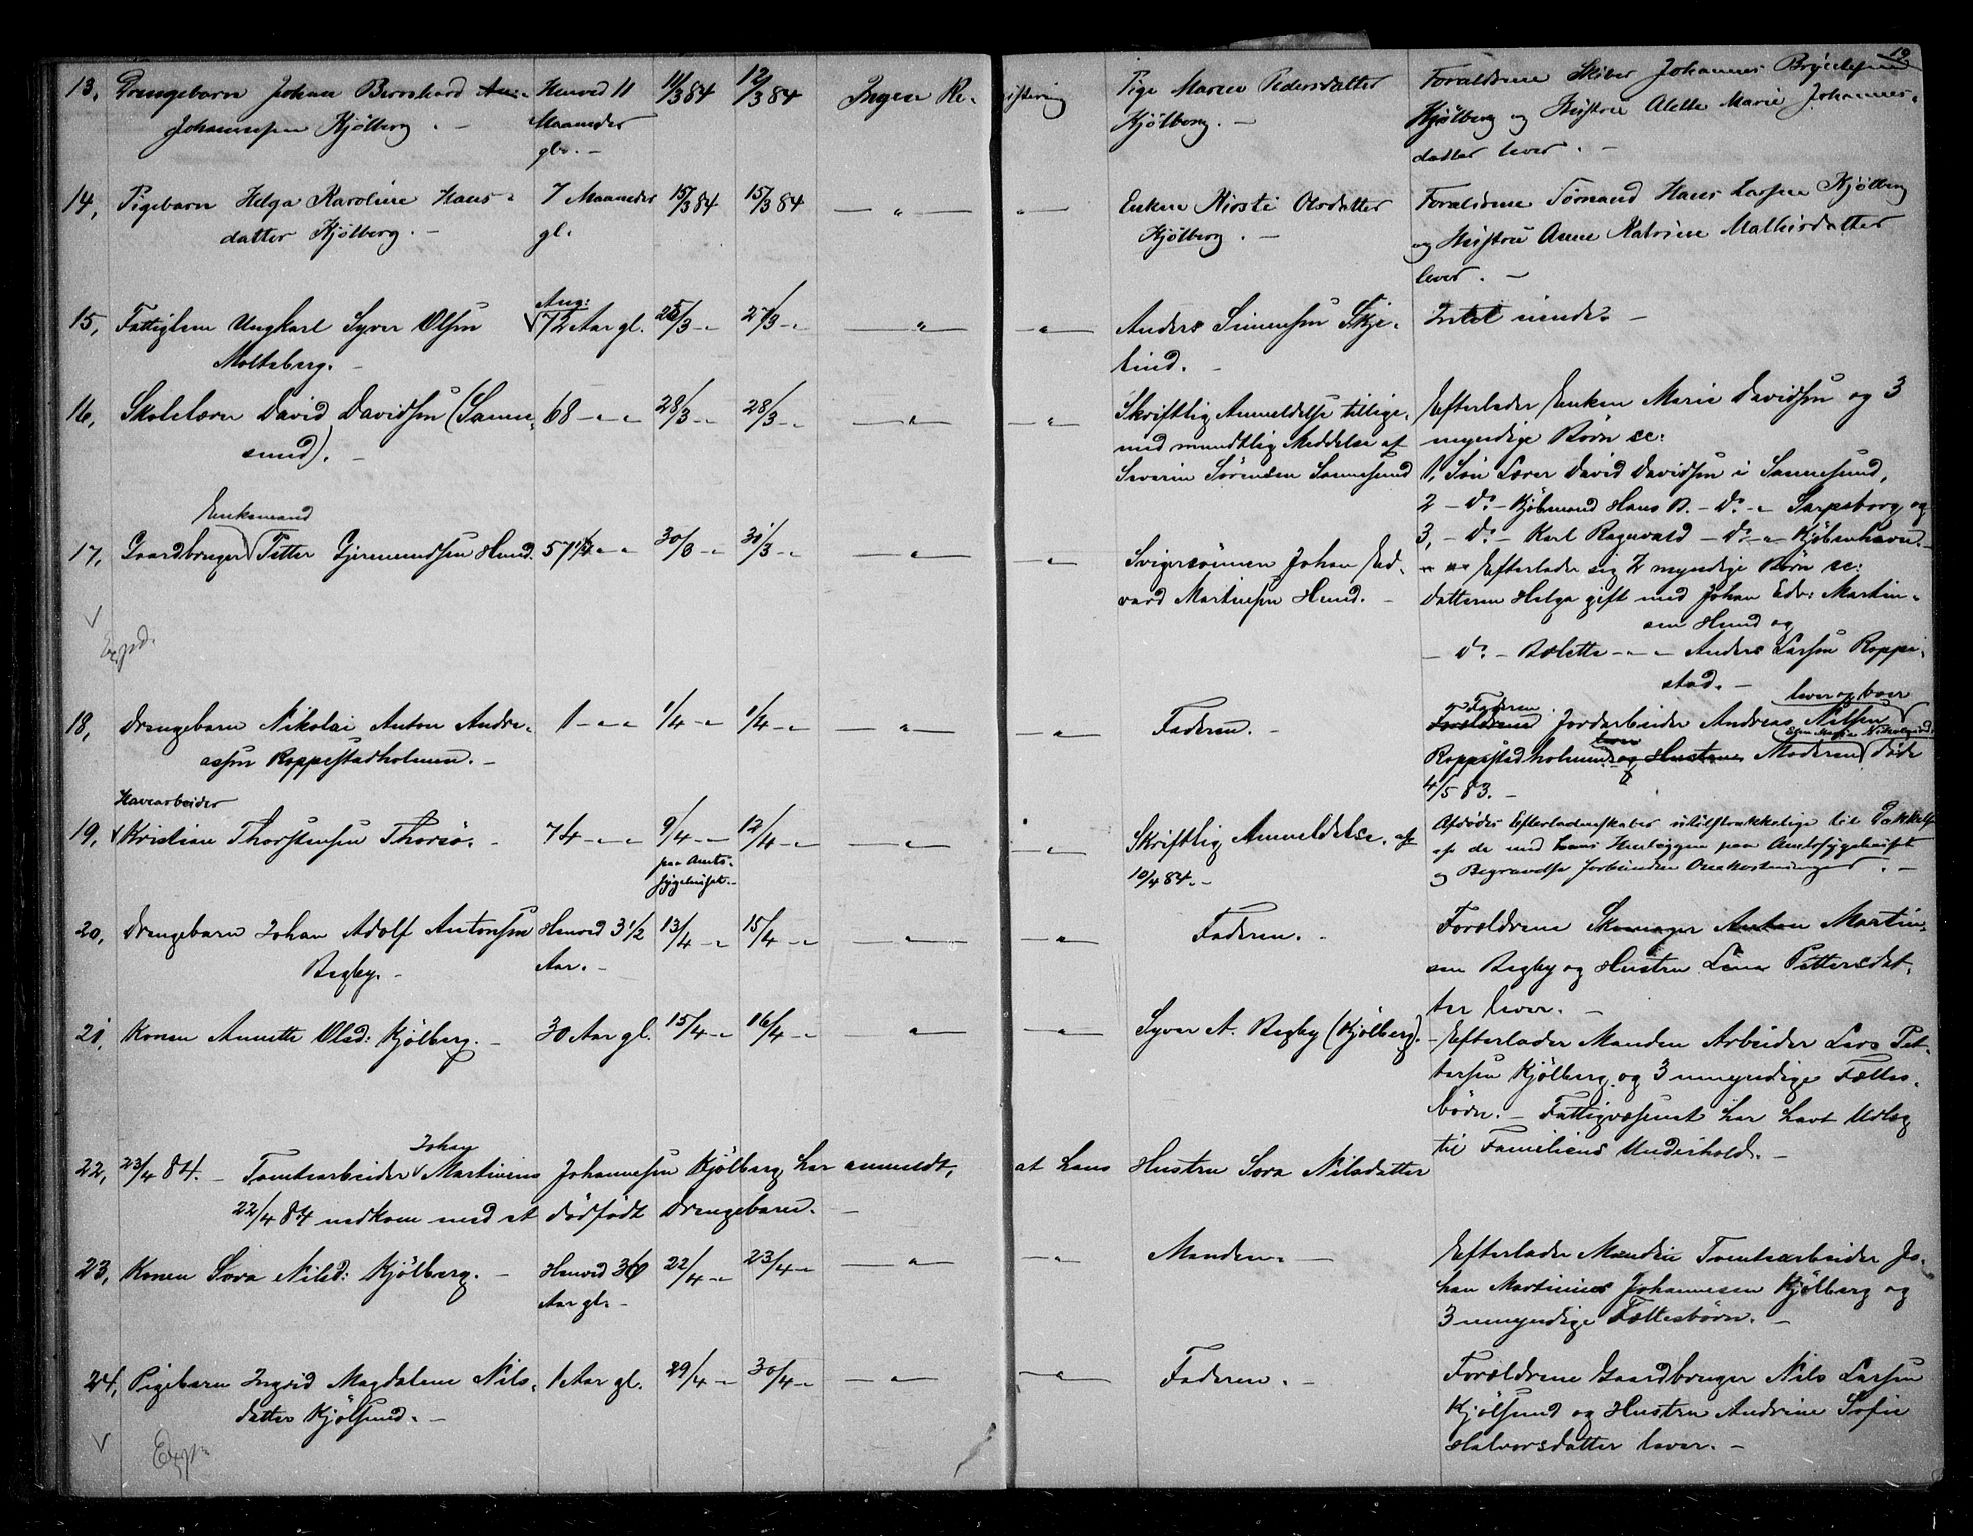 19
13, Drengebarn Johan Bernhard Henved 11 11/3 84 12/3 84 Ingen Registrering Pige Maren Pedersdatter Forældrene Skiber Johannes
Johannessen Kjølberg. - Maaneder Kjølberg. - Kjølberg og Hustru Alette Marie Johannes-
gl. - datter lever. -
14, Pigebarn Helga Karoline Hans- 7 Maaneder 15/3 84 15/3 84 — " — " — Enken Kirsti Olsdatter Forældrene Tømand Hans Larsen Kjølberg
datter Kjølberg. - gl. Kjølberg. - og Hustru Anne Katrine Mathisdatter
lever. -
Aug:
15, Fattiglem Ungkarl Syver Olsen 72 Aar gl. 25/3 - " 27/3 - " — " — " — Anders Simensen Skje- Intet eiende. -
Molteberg. - lind. -
16, Skolelærer David Davidsen (Sanne- 68 - " - " 28/3 - " 28/3 - " — " — " — Skriftlig Anmeldelse tillige- Efterlader Enken Marie Davidsen og 3
sund). - med mundtlig Meddelse af myndige Børn sc:
Severin Sørensen Sannesund 1, Søn Lærer David Davidsen i Sannesund,
2 - Do - Kjøbmand Hans D. - Do - " Sarpsborg og
3, - Do - Karl Ragnvald - Do - " Kjøbenhavn. -
Enkemand
17, Gaardbruger Petter Gjermundsen Hund. 57 1/2 - " 30/3 - " 31/3 - " — " — " — Svigersønnen Johan Ed- Efterlader sig 2 myndige Børn sc:
vard Martinsen Hund. - Datteren Helga gift med Johan Edv: Martin-
sen Hund og
- Do - Bolette - " - " Anders Larsen Roppe-
stad. -
Exped.
18, Drengebarn Nikolai Anton Andre- 1 - " - " 1/4 - " 1/4 - " — " — " — Faderen. - Faderen Forældrene Jordarbeider Andreas Nilsen lever og boer
assen Roppestadholmen. - Roppestadholmen og Hustrue Moderen Elen Marie døde
4/5 83. -
Havearbeider
19, Kristian Thorstensen Thorsø. - 74 - " - " 9/4 - " 12/4 - " — " — " — Skriftlig Anmeldelse af Afdødes Efterladenskaber utilstrækkelige til Dækkelse
paa Amts- 10/4 84. - af de med hans Henliggen paa Amtssygehuset
sygehuset. - og Begravelse forbunden Omkostninger. -
20, Drengebarn Johan Adolf Antonsen Henved 3 1/2 13/4 - " 15/4 - " — " — " — Faderen. - Forældrene Skomager Anton Martin-
Begby. - Aar. - sen Begby og Hustru Lina Pettersdat-
ter lever. -
21, Konen Annette Olsd: Kjølberg. - 30 Aar gl. 15/4 - " 16/4 - " — " — " — Syver A. Begby (Kjølberg). - Efterlader Manden Arbeider Lars Pet-
tersen Kjølberg og 3 umyndige Fælles-
børn. - Fattigvæsenet har havt Udlæg
til Familiens Underhold. -
22, 23/4 84. - Tomtearbeider Johan Martinius Johannesen Kjølberg har anmeldt, at hans Hustru Sova Nilsdatter
22/4 84 nedkom med et dødfødt Drengebarn. -
23, Konen Sova Nilsd: Kjølberg. - Henved 36 22/4 - " 23/4 - " — " — " — Manden. - Efterlader Manden Tomtearbeider Jo-
Aar gl. - han Martinius Johannesen Kjølberg og
3 umyndige Fællesbørn. -
24, Pigebarn Ingrid Magdalene Nils- 1 Aar gl. 29/4 - " 30/4 - " — " — " — Faderen. - Forældrene Gaardbruger Nils Larsen
datter Kjølsund. - Kjølsund og Hustru Andrine Sofie
Halvorsdatter lever. -
Exp.